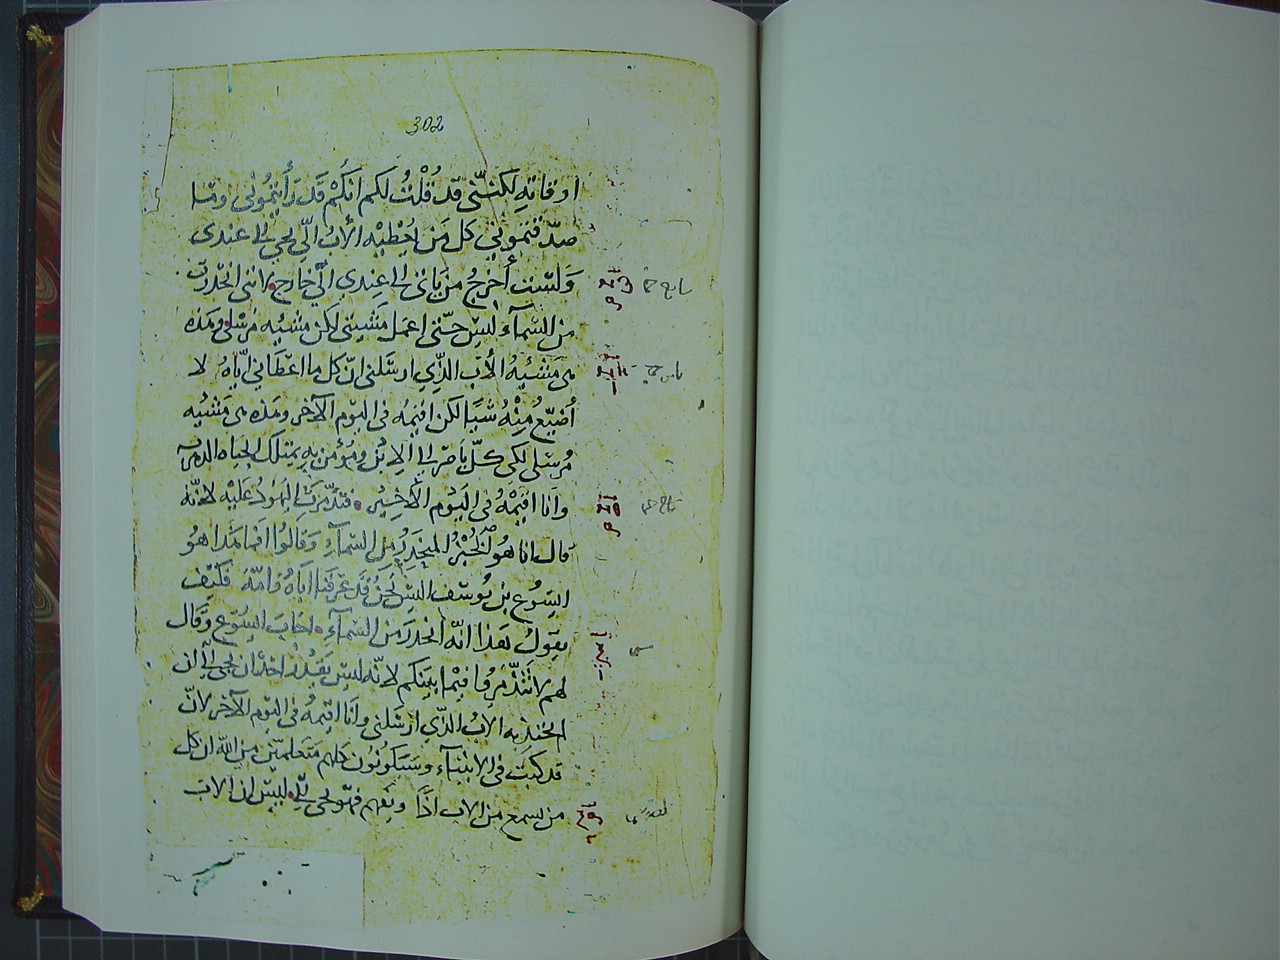 302
اوفاته لكنّنى قد قُلْتُ لكم انكم قَد رَأيتمُونى وما
صدّقتمونى كل مَن يُعْطيْه الأبُ الّي يجى الي عندى
وَلسْت أُخرجُ مَن يَاتى الى عِندي الّي خارج لاننى انحدرت
من السّمآء ليسَ حتّى اعمل مَشيتى لكن مشيّه مُرسلى وهَذه
هى مَشيّه الأب الذّي ارسَلنى انّ كل ما اعْطَانى ايّاهُ لا
أُضيّعُ مِنْهُ شيًا لكن اقيمُه فى اليَوْم الآخر وهَذه هى مَشيّه
مُرسَلى لكى كلّ نَاصر الي الاِبْن ومُؤمن به يمتلك الحياه الدهريّه
وانا اقيمْهُ فى اليَوْم الأخيْر فتذّمرَت اليَهودُ عَليْه لانّه
قال انا هُو الخُبْز المنحَدِرُ مِن السّمآء وَقالوُا افما هَذا هُو
ايسُوع بن يُوسُف اليسَ نحنُ قد عَرفنا ابَاهُ وامّهُ فكيْف
يقولُ هَذا انّه انحدَرَ من السّمآء اجابَ ايسُوع وقَال
لهم لا تَتذّمروا فيْما بينكم لانّه ليسَ يَقدُر احَد ان يجى الىّ ان
لم يجتذبه الابُ الذّي ارسَلنى وانا اقيمهُ فى اليَوم الآخر لانّ
قد كتبَ فى الانبيَآء وسَيكونُون كلهم متَعلميْن مِن الله ان كل
من يسمع من الاب اذًا ويَفهم فهو يجى الىّ ليْسَ ان الاب